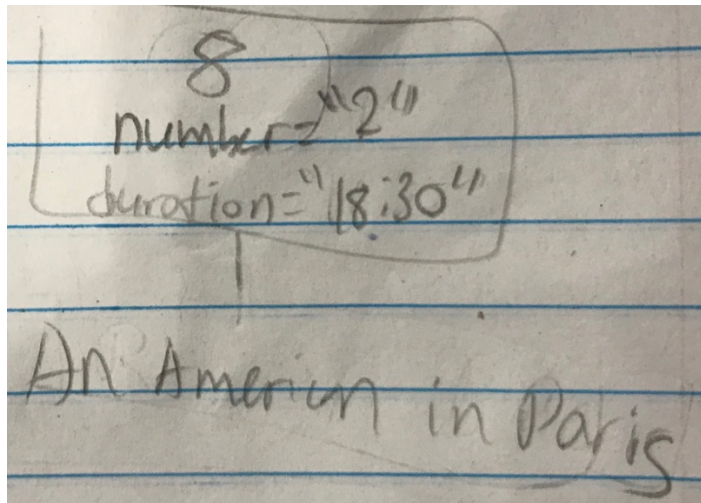 8
number="2"
duration="18:30"
An American in Paris